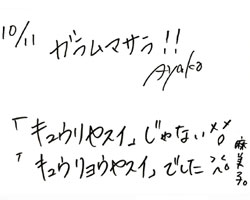 10/11
ガラムマサラ!!
Ayako
「キュウリやスイ」じゃない××
「キュウリョウやスイ」でした
麻美子。